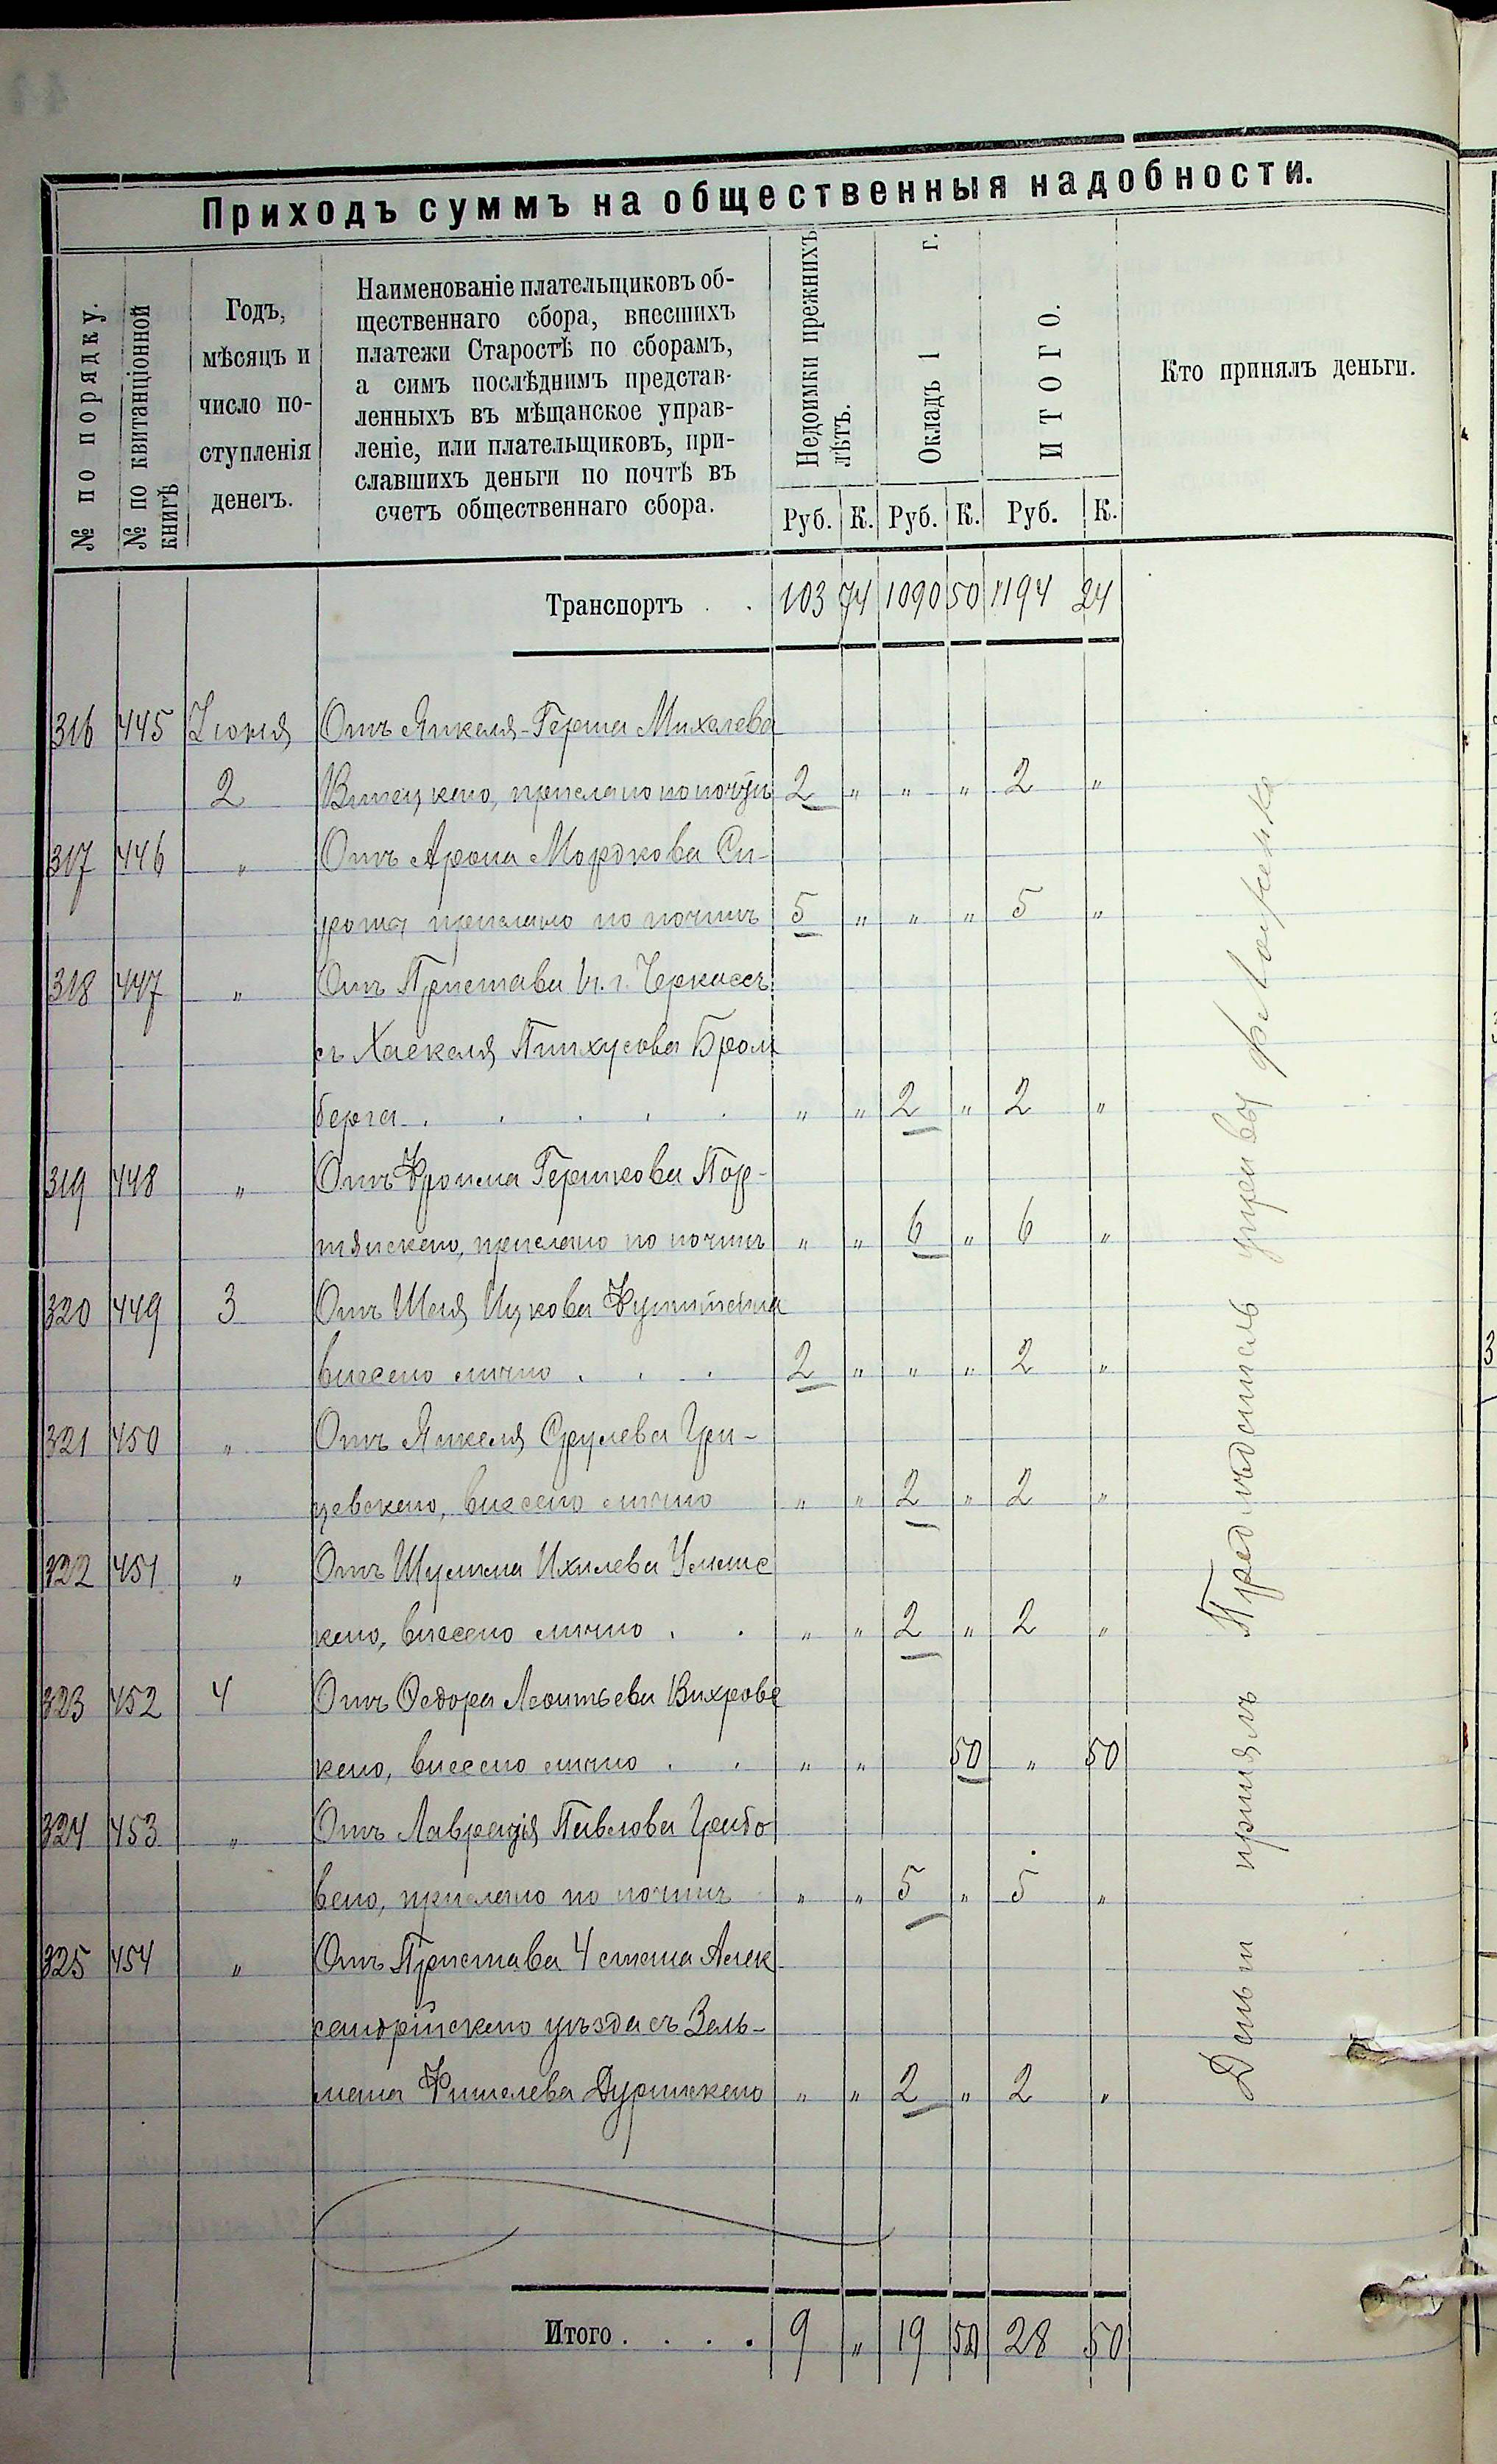 Приходъ суммъ на общественныя надобности.
№ по порядку.
№ по квитанціонной книгѣ
Годъ,
мѣсяцъ и
число по-
ступленія
денегъ.
Наименованіе плательщиковъ об-
щественнаго сбора, внесшихъ
платежи Старостѣ по сборамъ,
а симъ послѣднимъ представ-
ленныхъ въ мѣщанское управ-
леніе, или плательщиковъ, при-
славшихъ деньги по почтѣ въ
счетъ общественнаго сбора.
Недоимки прежнихъ лѣтъ.
Окладъ 1 г.
ИТОГО.
Кто принялъ деньги.
Руб. К. Руб. К. Руб. К.
Транспортъ . . 103 74 1090 50 1194 24
316 445 Іюня Отъ Янкеля-Герша Михелева
2 прислано по почтѣ 2 " " " 2 "
317 446 " Отъ Арона Мордкова Си-
рота прислано по почтѣ 5 " " " 5 "
318 447 " Отъ Пристава г. Черкассъ
съ Хаскеля Пинхусова Бром
берга . . . . . " " 2 " 2 "
319 448 " Отъ Фроима Гершкова Пор-
тянскаго, прислано по почтѣ " " 6 " 6 "
320 449 3 Отъ Шая Ицкова
внесено лично . . . 2 " " " 2 "
321 450 " Отъ Янкеля Срулева Гри-
цевскаго, внесено лично " " 2 " 2 "
322 451 " Отъ Шулима Ихилева Уманс
каго, внесено лично . . " " 2 " 2 "
323 452 4 Отъ Ѳедора Леонтьева Вихровс
каго, внесено лично . . " " 50 " 50
324 453 " Отъ Лаврентія Павлова Грибо
ваго, прислано по почтѣ " " 5 " 5 "
325 454 " Отъ Пристава 4 стана Алек
сандрійскаго уѣзда съ Зель-
мана Фишелева Дуринскаго " " 2 " 2 "
Итого . . . . 9 " 19 50 28 50
Деньги принялъ Предсѣдатель управы